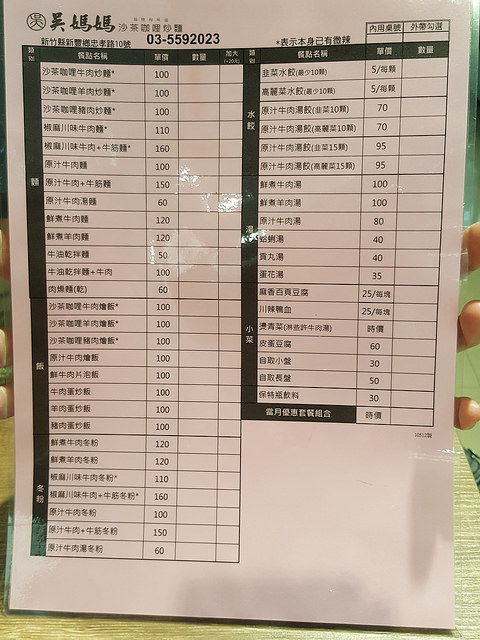 吳 吳媽媽 沙茶咖哩炒麵
新竹縣新豐鄉忠孝路10號 03-5592023
*表示本身已有微辣
內用桌號 外帶勾選
類別 餐點名稱 單價 數量 加大(+20元)
麵
沙茶咖哩牛肉炒麵* 100
沙茶咖哩羊肉炒麵* 100
沙茶咖哩豬肉炒麵* 100
椒麻川味牛肉麵* 110
椒麻川味牛肉+牛筋麵* 160
原汁牛肉麵 100
原汁牛肉+牛筋麵 150
原汁牛肉湯麵 60
鮮煮牛肉麵 120
鮮煮羊肉麵 120
牛油乾拌麵 50
牛油乾拌麵+牛肉 100
肉燥麵(乾) 60
飯
沙茶咖哩牛肉燴飯* 100
沙茶咖哩羊肉燴飯* 100
沙茶咖哩豬肉燴飯* 100
原汁牛肉燴飯 100
鮮牛肉片泡飯 100
牛肉蛋炒飯 100
羊肉蛋炒飯 100
豬肉蛋炒飯 100
冬粉
鮮煮牛肉冬粉 120
鮮煮羊肉冬粉 120
椒麻川味牛肉冬粉* 110
椒麻川味牛肉+牛筋冬粉* 160
原汁牛肉冬粉 100
原汁牛肉+牛筋冬粉 150
原汁牛肉湯冬粉 60
類別 餐點名稱 單價 數量
水餃
韭菜水餃(最少10顆) 5/每顆
高麗菜水餃(最少10顆) 5/每顆
原汁牛肉湯餃(韭菜10顆) 70
原汁牛肉湯餃(高麗菜10顆) 70
原汁牛肉湯餃(韭菜15顆) 95
原汁牛肉湯餃(高麗菜15顆) 95
湯
鮮煮牛肉湯 100
鮮煮羊肉湯 100
原汁牛肉湯 80
蛤蜊湯 40
貢丸湯 40
蛋花湯 35
小菜
麻香百頁豆腐 25/每塊
川辣鴨血 25/每塊
燙青菜(淋些許牛肉湯) 時價
皮蛋豆腐 60
自取小盤 30
自取長盤 50
保特瓶飲料 30
當月優惠套餐組合 時價